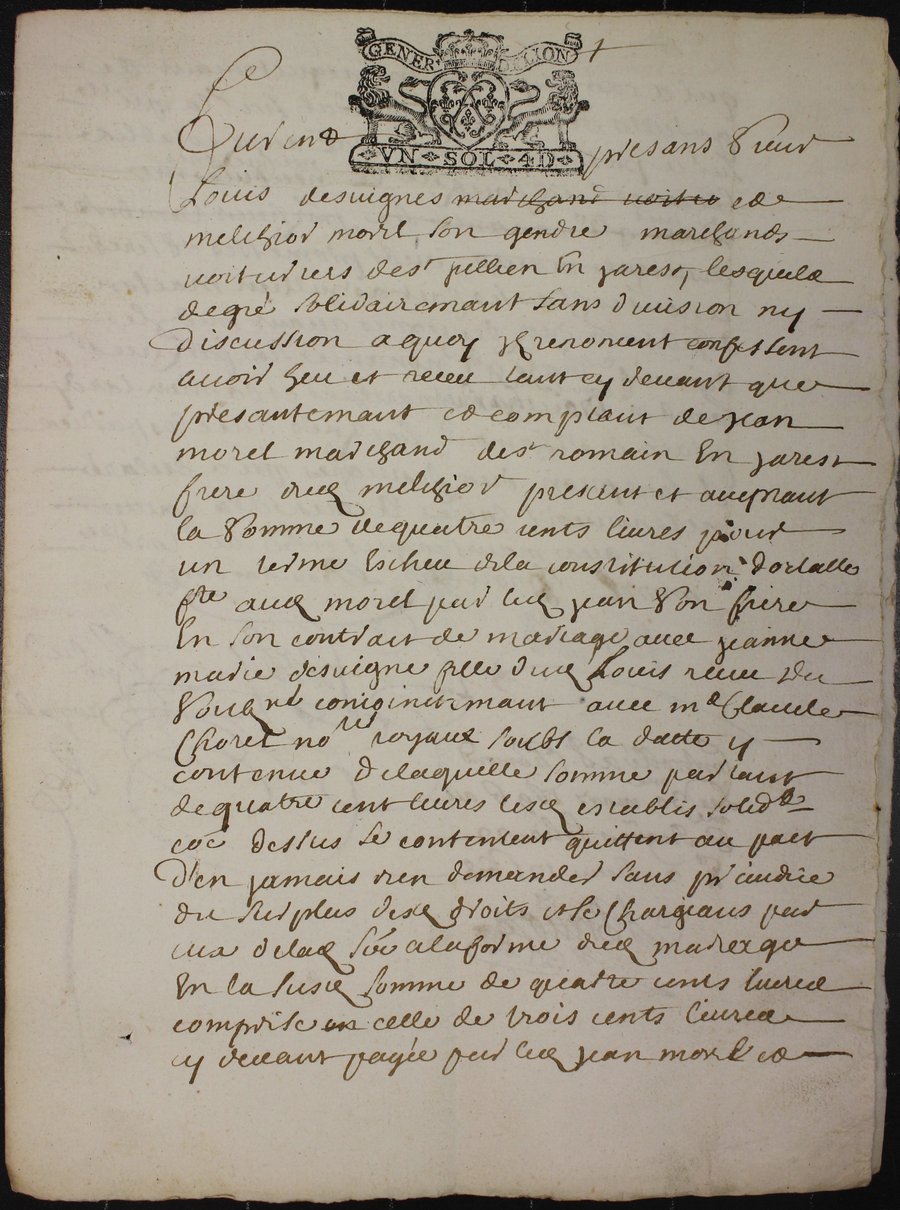 GENER DE LION
VN SOL 4D
Furent presans Sieur
Louis desuignes marchand voitu et
melchior morel son gendre marchands
voituriers de st jullien En jarest, lesquels
de gré solidairemant sans diuision ny
discussion a quoy ils renoncent confessent
auoir heu et receu tant cy deuant que
presantemant et comptant de jean
morel marchand de st romain En jarest
frere dud melchior present et acceptant
la somme de quatre cents liures pour
un terme Escheu de la constitution dotalle
fte aud morel par led jean son frere
En son contrait de mariage auec jeanne
marie desuigne fille dud Louis receu du
soubne conjoinctemant auec me Claude
Choret nore royaux soubs la datte y
contenue de laquelle somme partant
de quatre cent liures lesd establis solidt
coe dessus se contentent quittent au pact
d'en jamais rien demander sans prejudice
du surplus desd droits et se chargeans par
eux de lad soe a la forme dud mariage
En la susd somme de quatre cents liures
comprise en celle de trois cents liures
cy deuant payée par led jean morel et